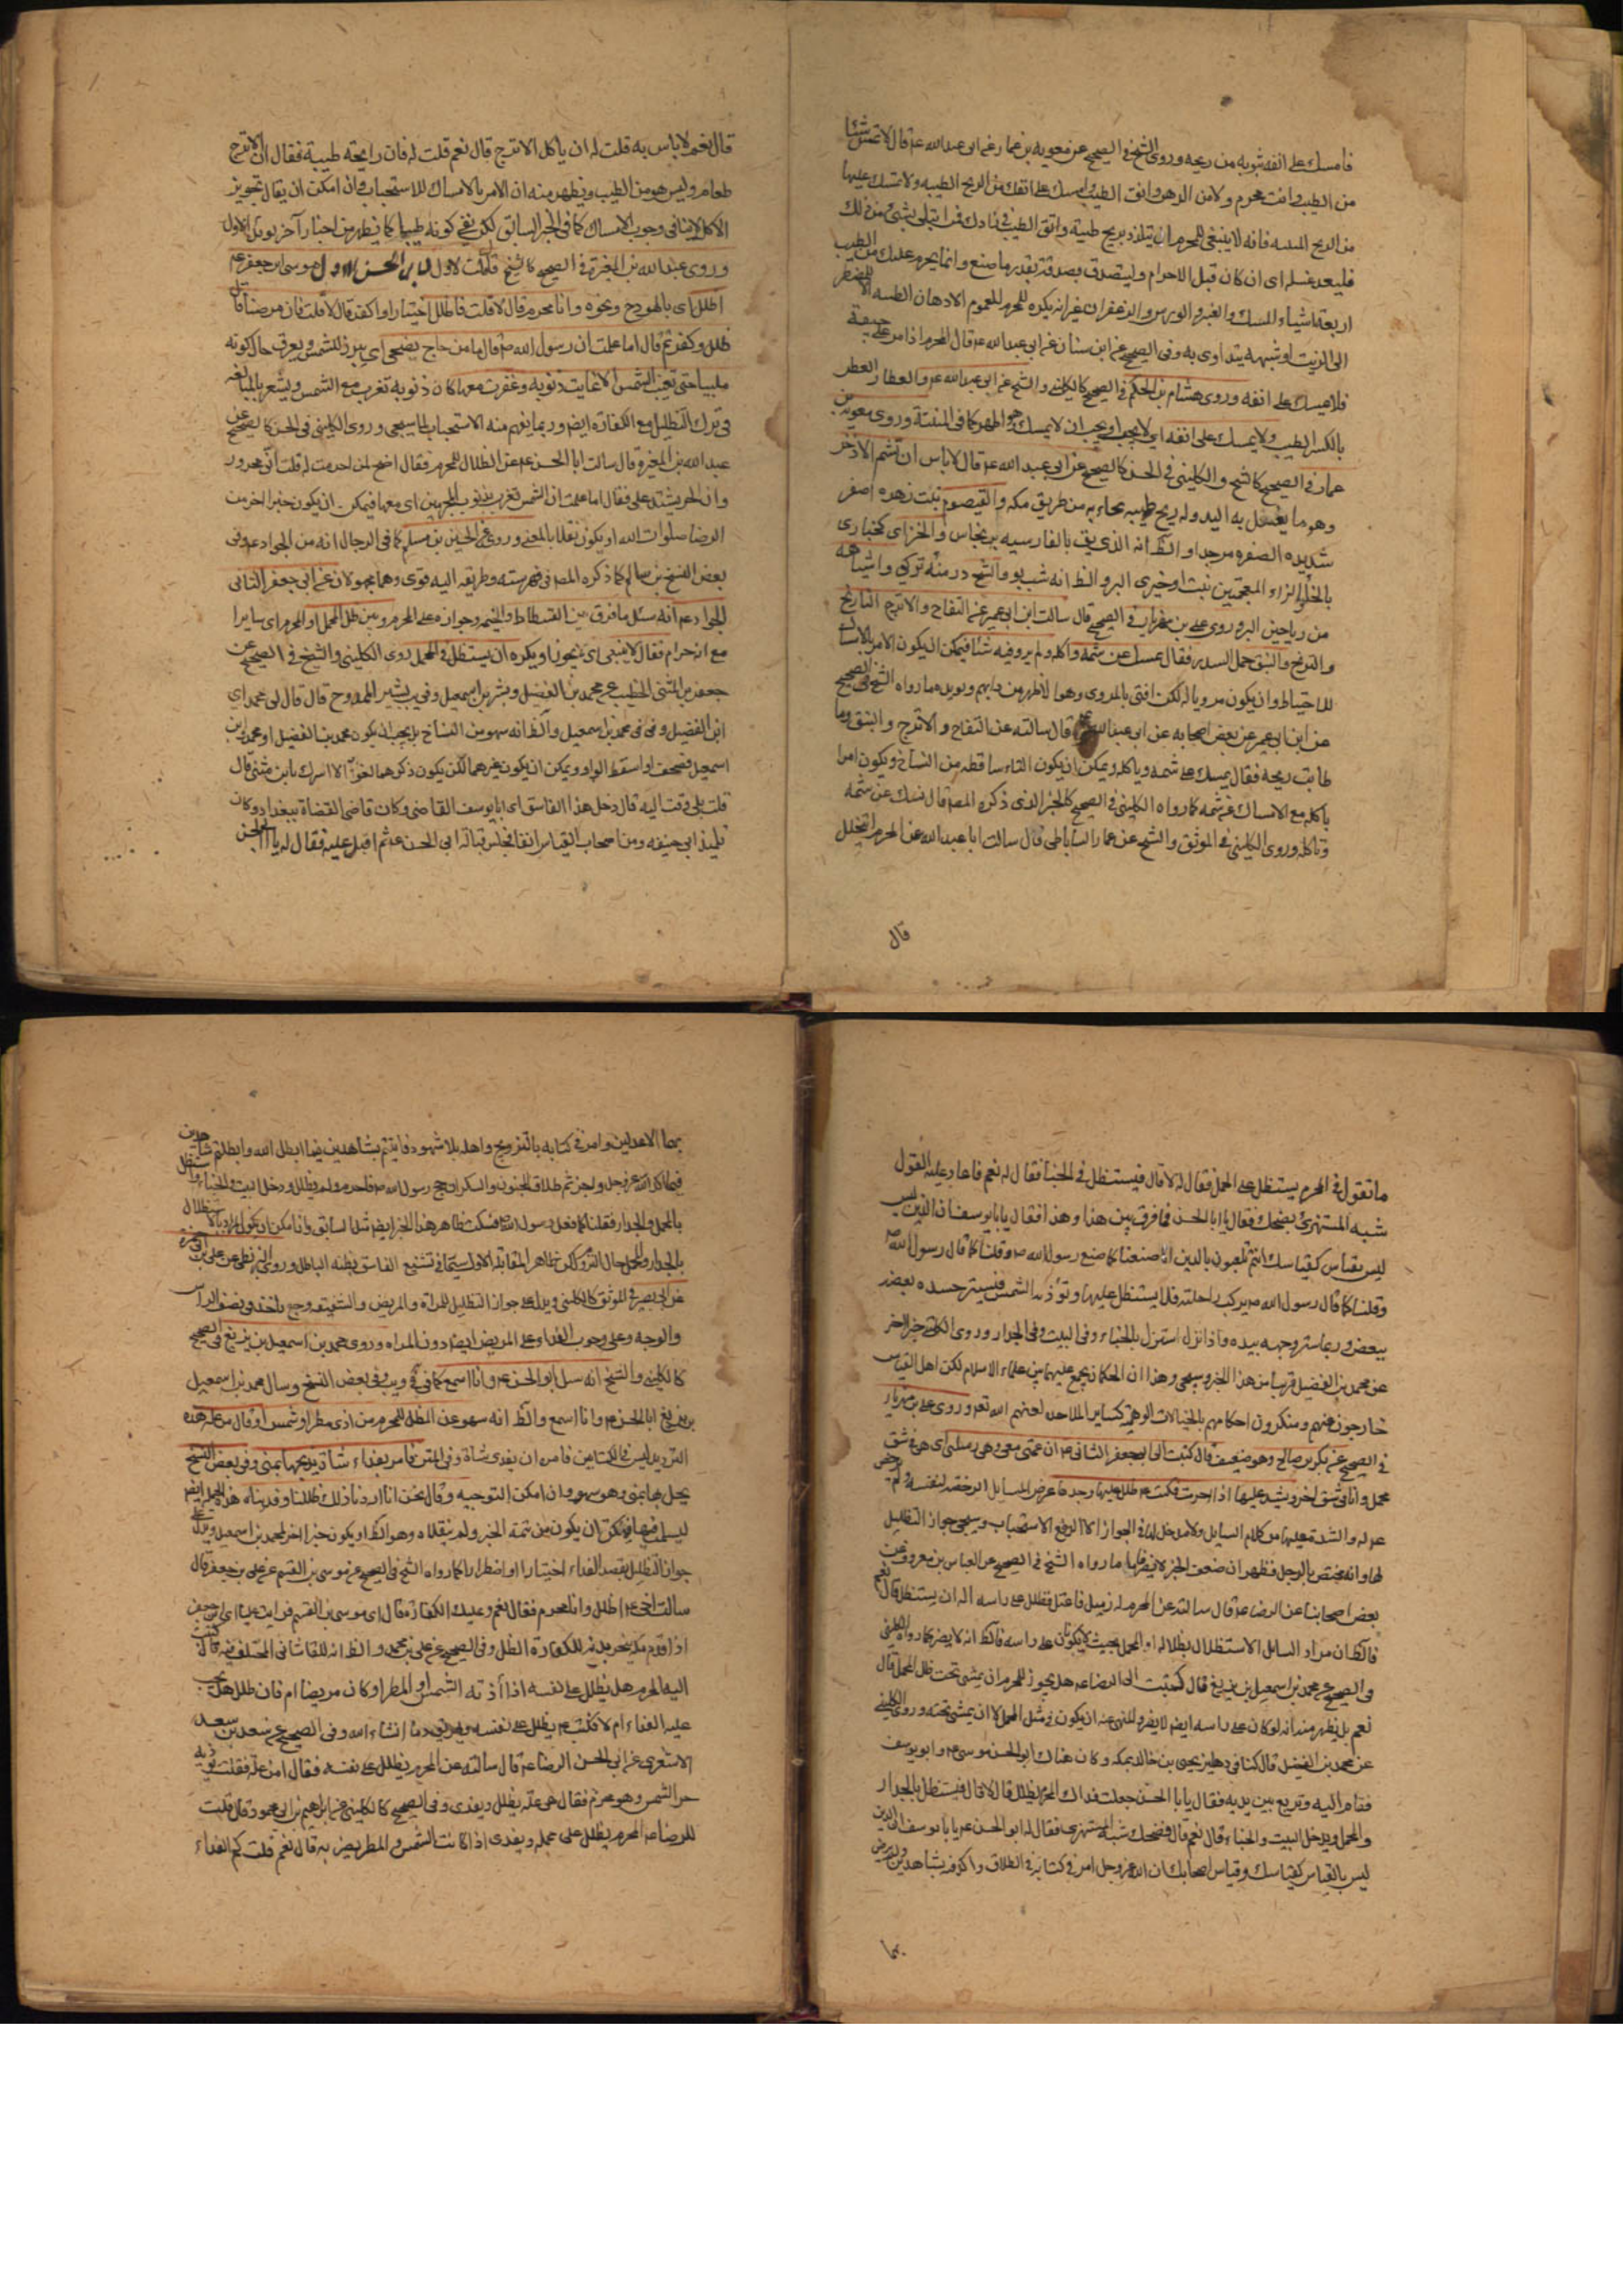 فامسك على انفه بثوبه من ريحه وروى الشيخ فى الصحيح عن معويه بن عمار عن ابى عبد الله ع قال لا تمس شيئا
من الطيب وانت محرم ولا من الدهن واتق الطيب وامسك على انفك من الريح الطيبه ولا تمسك عليها
من الريح المنتنه فانه لا ينبغى للمحرم ان يتلذذ بريح طيبة واتق الطيب فى زادك فمن ابتلى بشئ من ذلك
فليعد غسله اى ان كان قبل الاحرام وليتصدق بصدقة بقدر ما صنع وانما يحرم عليك من الطيب
اربعة اشياء المسك والعنبر والورس والزعفران غير انه يكره للمحرم الادهان الطيبه الا المضطر
الى الزيت او شبهه يتداوى به وفى الصحيح عن ابن سنان عن ابى عبد الله ع قال المحرم اذا مر على جيفة
فلا يمسك على انفه وروى هشام بن الحكم فى الصحيح كالكلينى والشيخ عن ابى عبد الله ع والعطار العطر
بالكسر الطيب ولا يمسك على انفه اى لا يجب او يجب ان لا يمسك وهو اظهر كما فى المنتنة وروى معوية بن
عمار فى الصحيح كالشيخ والكلينى فى الحسن كالصحيح عن ابى عبد الله ع قال لا باس ان تشم الاذخر
وهو ما يغسل به اليد وله ريح طيبه يجاء به من طريق مكه والقيصوم نبت زهره اصفر
شديده الصفره مر جدا والظ انه الذى يق بالفارسيه برنجاس والخزاى كخبارى
بالخاء والزاء المعجمتين نبت او خيرى البر والظ انه شب بو والشيح درمنه تركى واشباهه
من رياحين البر وروى على بن مهزيار فى الصحيح قال سالت ابن ابى عمير عن التفاح والاترج النارنج
والترنج والنبق حمل السدر فقال تمسك عن شمه واكله ولم يرو فيه شئا فيمكن ان يكون الامر بالامساك
للاحتياط وان يكون مرويا له لكن افتى بالمروى وهو الاظهر من دابهم ويويده ما رواه الشيخ فى الصحيح
عن ابن ابى عمير عن بعض اصحابه عن ابى عبد الله ع قال سالته عن التفاح والاترج والنبق وما
طابت ريحه فقال يمسك على شمه وياكله ويمكن ان يكون التاء ساقطه من النساخ ويكون امرا
باكله مع الامساك عن شمه كما رواه الكلينى فى الصحيح كالخبر الذى ذكره المص قال تمسك عن شمه
وتاكله وروى الكلينى فى الموثق والشيخ عن عمار الساباطى قال سالت ابا عبد الله عن المحرم ايتخلل
قال
قال نعم لا باس به قلت له ان ياكل الاترج قال نعم قلت له فان رايحته طيبة فقال ان الاترج
طعام وليس هو من الطيب ويظهر منه ان الامر بالامساك للاستحباب فى ان امكن ان يقال تجويز
الاكل لا ينافى وجوب الامساك كما فى الخبر السابق لكن نفى كونه طيبا كما يظهر من اخبار آخر يويد الاول
وروى عبد الله بن المغيرة فى الصحيح كالشيخ قال قلت لابى الحسن الاول موسى ابن جعفر ع
اظلل اى بالهودج ونحوه وانا محرم قال لا قلت فاظلل اختيارا واكفر قال لا قلت فان مرضت قال
ظلل وكفر ثم قال اما علمت ان رسول الله ص قال ما من حاج يضحى اى يبرز للشمس ويعرق حال كونه
ملبيا حتى تغيب الشمس الا غابت ذنوبه وغفرت معها كان ذنوبه تغرب مع الشمس ويشعر بالمبالغه
فى ترك التظليل مع الكفارة ايض وربما يفهم منه الاستحباب لما سيجى وروى الكلينى فى الحسن كالصحيح عن
عبد الله بن المغيرة قال سالت ابا الحسن ع عن الظلال للمحرم فقال اضح لمن احرمت له قلت انى محرور
وان الحر يشتد على فقال اما علمت ان الشمس تغرب بذنوب المجرمين اى معها فيمكن ان يكون خبرا اخر من
الرضا صلوات الله او يكون نقلا بالمعنى وروى عن الحسين بن مسلم كما فى الرجال انه من الجواد ع وفى
بعض النسخ بن سالم كما ذكره المص فى فهرسته وطريقه اليه قوى وهما مجهولان عن ابى جعفر الثانى
الجواد ع انه سئل ما فرق بين الفسطاط والخيمه وجوازه على المحرم وبين ظل المحمل او المحرم اى سايرا
مع انه حرام فقال لا ينبغى اى لا يجوز او يكره ان يستظل فى المحمل روى الكلينى والشيخ فى الصحيح عن
جعفر بن المثنى الخطيب عن محمد بن الفضيل وبشر بن اسمعيل وفى يب بشير الممدوح قال قال لى محمد اى
ابن الفضيل وفى فى محمد بن اسمعيل والظ انه سهو من النساخ بل يجب ان يكون محمد بن الفضيل او محمد بن
اسمعيل فصحف او اسقط الواو ويمكن ان يكون غيرهما لكن يكون ذكرهما لغوا الا اسرك يا بن مثنى قال
قلت بلى وقمت اليه قال دخل هذا الفاسق اى ابا يوسف القاضى وكان قاضى القضاة ببغداد وكان
تلميذ ابى حنيفه ومن اصحاب القياس انفا فجلس قبالة ابى الحسن ع ثم اقبل عليه فقال له يا ابا الحسن
ما تقول فى المحرم يستظل على المحمل فقال له لا قال فيستظل فى الخباء فقال له نعم فاعاد عليه القول
شبه المستهزئ يضحك فقال يا ابا الحسن فما فرق بين هذا وهذا فقال يا ابا يوسف ان الدين ليس
ليس بقياس كقياسك انتم تلعبون بالدين انا صنعنا كما صنع رسول الله ص وقلنا كما قال رسول الله ص
وقلنا كما قال رسول الله ص يركب راحلته فلا يستظل عليها وتؤذيه الشمس فيستر جسده بعضه
ببعض وربما ستر وجهه بيده واذا نزل استزل بالخباء وفى البيت وفى الجدار وروى الكلينى خبرا اخر
عن محمد بن الفضيل قريبا من هذا الخبر وسيجى وهذا ان الحكمان مجمع عليهما بين علماء الاسلام لكن اهل القياس
خارجون عنهم ومنكرون احكامهم بالخيالات الوهميه كساير الملاحده لعنهم الله تع وروى على بن مهزيار
فى الصحيح عن بكر بن صالح وهو ضعيف قال كتبت الى ابى جعفر الثانى ع ان عمتى معى وهى زميلتى اى هى فى شق
محمل وانا فى شق اخر ويشتد عليها اذا احرمت فكتب ع ظلل عليها وحدها
لها وانه مختص بالرجل فظهر ان ضعف الخبر لا يضر فاما ما رواه الشيخ فى الصحيح عن العباس بن معروف عن
بعض اصحابنا عن الرضا ع قال سالته عن المحرم له زميل فاعتل فظلل على راسه اله ان يستظل قال نعم
فالظ ان مراد السايل الاستظلال بظلاله او المحمل بحيث لا يكون على راسه فالظ انه لا يضر كما رواه الكلينى
فى الصحيح عن محمد بن اسمعيل بن بزيع قال كتبت الى الرضا ع هل يجوز للمحرم ان يمشى تحت ظل المحمل قال
نعم بل يظهر منه انه لو كان على راسه ايض لا يضر والمنهى عنه ان يكون فى مثل المحمل لا ان يمشى تحته وروى الكلينى
عن محمد بن الفضيل قال كنا فى دهليز يحيى بن خالد بمكه وكان هناك ابو الحسن موسى ع وابو يوسف
فقام اليه وتربع بين يديه فقال يا ابا الحسن جعلت فداك المحرم يظلل قال لا قال فيستظل بالجدار
والمحمل ويدخل البيت والخباء قال نعم قال فضحك شبه المستهزى فقال له ابو الحسن ع يا با يوسف ان الدين
ليس بالقياس كقياسك وقياس اصحابك ان الله عز وجل امر فى كتابه فى الطلاق واكد فيه بشاهدين ولم يرض
بهما
بهما الا عدلين وامر فى كتابه بالتزويج واهمله بلا شهود فاتيتم بشاهدين فيما ابطل الله وابطلتم شاهدين
فيما اكد الله عز وجل واجزتم طلاق المجنون والسكران حج رسول الله ص فاحرم ولم يظلل ودخل البيت والخباء واستظل
بالمحمل والجدار فقلنا كما فعل رسول الله ص فسكت
عن ابى بصير فى الموثق كالكلينى ويدل على جواز التظليل للمراة والمريض والشقيقه وجع ياخذ فى نصف الراس
والوجه وعلى وجوب الفداء على المريض ايضا دون المراه وروى محمد بن اسمعيل بن بزيع فى الصحيح
كالكلينى والشيخ انه سئل ابو الحسن ع وانا اسمع كما فى فى ويب وفى بعض النسخ وسال محمد بن اسمعيل
بن بزيع ابا الحسن ع وانا اسمع والظ انه سهو عن الظل للمحرم من اذى مطر او شمس او قال من علة هذه
الترديد ليس فى الكتابين فامره ان يفدى شاة وفى المتن فامر بفداء شاة يذبحها بمنى وفى بعض النسخ
يحل بها بمنى وهو سهو وان امكن التوجيه وقال نحن اذا اردنا ذلك ظللنا وفدينا هذه الجملة ايض
ليست فيهما فيمكن ان يكون من تتمة الخبر ولم ينقلاه وهو الظ او يكون خبرا اخر لمحمد بن اسمعيل ويدل على
جواز التظليل بقصد الفداء اختيارا او اضطرارا كما رواه الشيخ فى الصحيح عن موسى بن القسم عن على بن جعفر قال
سالت اخى ع اظلل وانا محرم فقال نعم وعليك الكفارة قال اى موسى بن القسم فرايت عليا اى ابن جعفر
اذا قدم مكه ينحر بدنه لكفارة الظل وفى الصحيح عن على بن محمد والظ انه القاشانى المختلف فيه قال كتبت
اليه المحرم هل يظلل على نفسه اذا آذته الشمس او المطر او كان مريضا ام لا فان ظلل هل يجب
عليه الفداء ام لا فكتب ع يظلل على نفسه ويهريق دما انشاء الله وفى الصحيح عن سعد بن سعد
الاشعرى عن ابى الحسن الرضا ع قال سالته عن المحرم يظلل على نفسه فقال امن علة فقلت يؤذيه
حر الشمس وهو محرم فقال هى علة يظلل ويفدى وفى الصحيح كالكلينى عن ابراهيم بن ابى محمود قال قلت
للرضا ع المحرم يظلل على محمله ويفدى اذا كانت الشمس والمطر يضر به قال نعم قلت كم الفداء